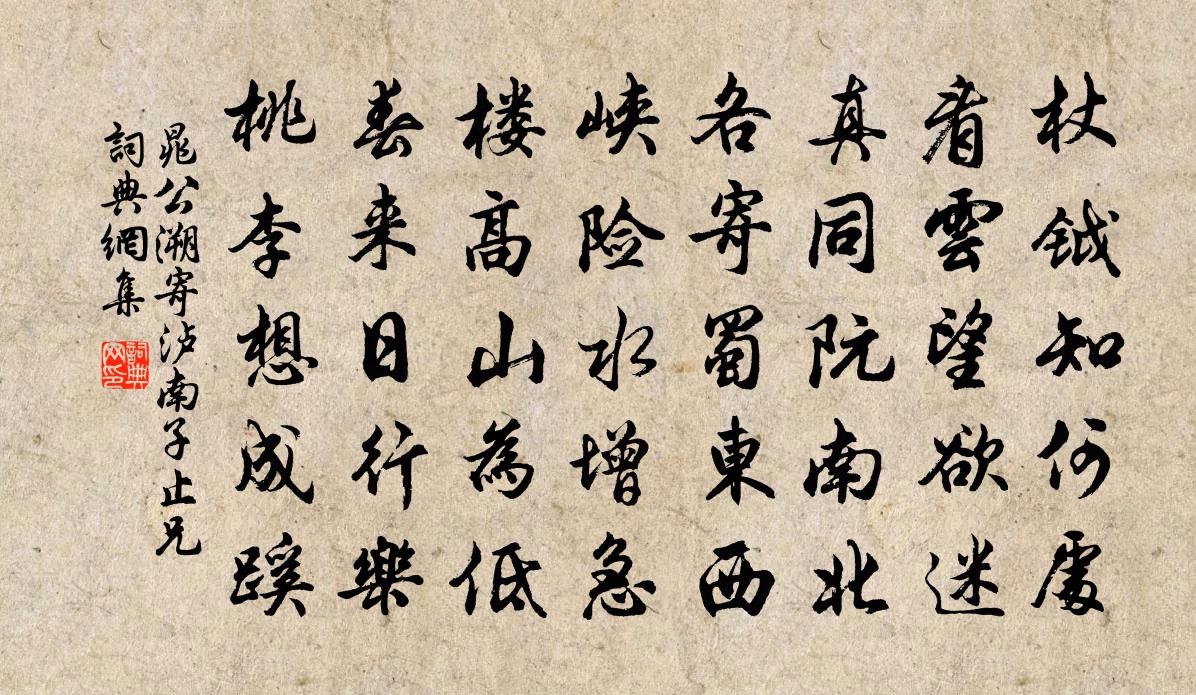 杖钺知何處
看雲望欲迷
真同阮南北
各寄蜀東西
峡险水增急
楼高山為低
春来日行樂
桃李想成蹊
晁公溯寄泸南子止兄
詞典網集
詞典
网印